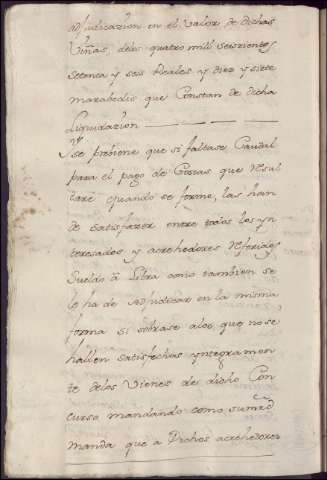 adjudicazion en el valor de dichas
Viñas, delos quatro mill seiszientos
Setenta y seis Reales y diez y siete
marabedis que Constan de dicha
Liquidazion
se prebiene que si faltase Caudal
para el pago de Costas que resul
tare quando se forme, las han
de satisfazer entre todos los yn
teresados y acrehedores referidos
Sueldo a Libra como tambien se
le ha de Adjudicar en la misma
forma si sobrase alos, que no se
hallen satisfechos yntegramen
te delos Vienes de dicho Con
curso mandando como su mrd
manda que a Dichos acrehedores